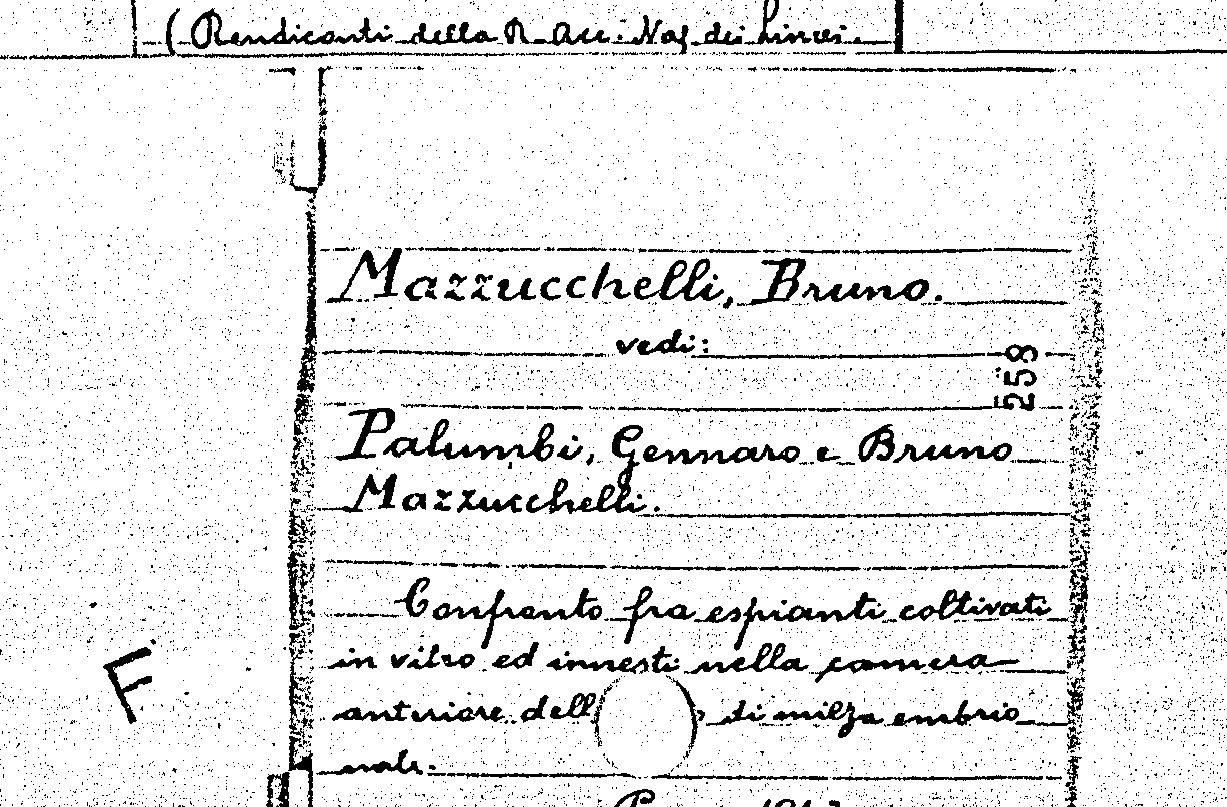 (Rendiconti della R. Acc. Naz. dei Lincei.
Mazzucchelli, Bruno.
vedi:
258
Palumbi, Gennaro e Bruno
Mazzucchelli.
Confronto fra espianti coltivati
in vitro ed innesti nella camera
anteriore dell di milza embrio
nale.
F